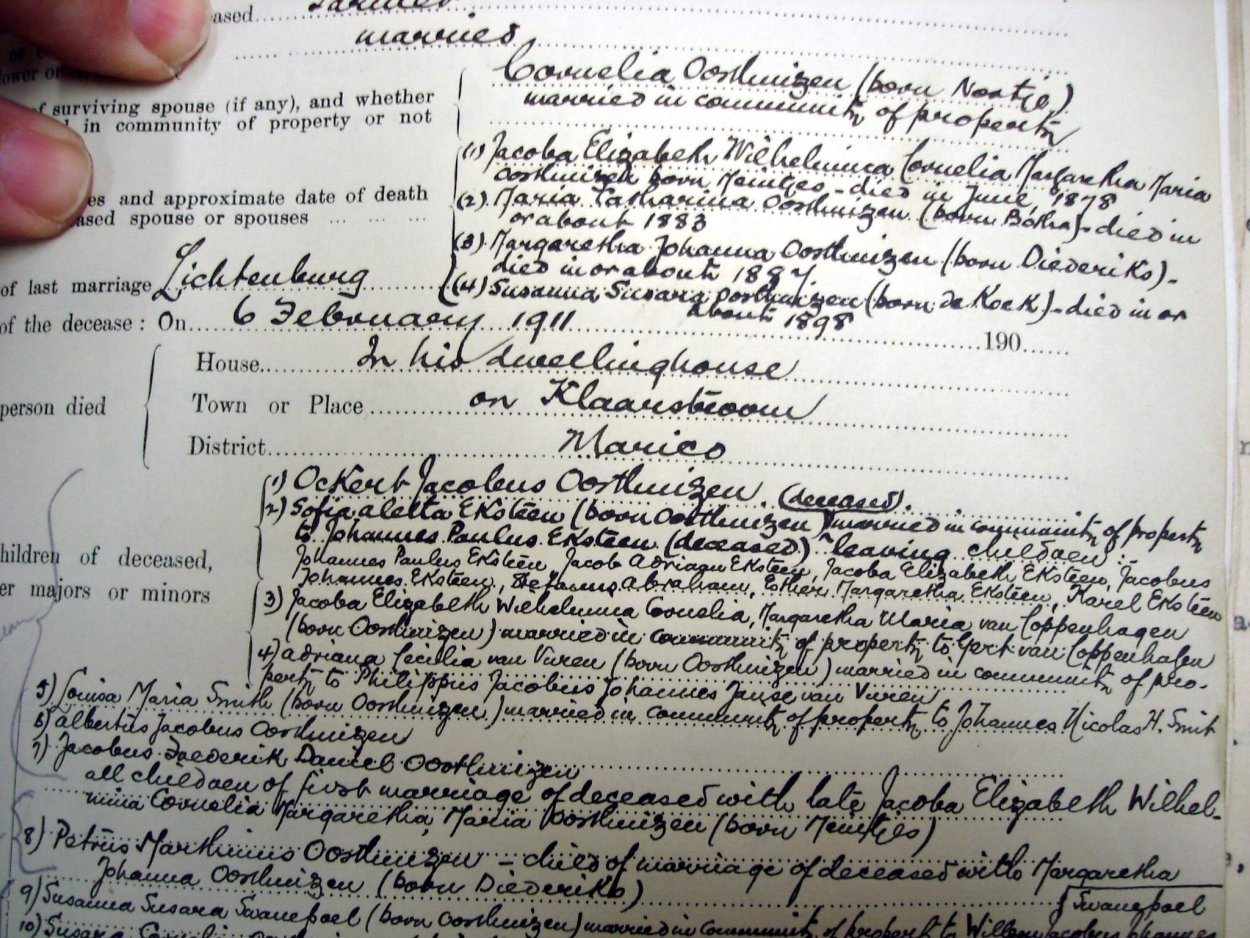 ased
married
of surviving spouse (if any), and whether
in community of property or not
Cornelia Oosthuizen (born Nortje)
married in community of property
es and approximate date of death
ased spouse or spouses
(1) Jacoba Elizabeth Wilhelmina Cornelia Margaretha Maria
Oosthuizen born Meintjes - died in June, 1878
(2) Maria Catharina Oosthuizen (born Botha) - died in
or about 1883
(3) Margaretha Johanna Oosthuizen (born Diederiks) -
died in or about 1897
(4) Susanna Susara Oosthuizen (born de Kock) - died in or
about 1898
of last marriage Lichtenburg
of the decease: On 6 February 1911 190
person died
House In his dwellinghouse
Town or Place on Klaarstroom
District Marico
hildren of deceased,
er majors or minors
(1) Ockert Jacobus Oosthuizen (deceased).
2) Sofia Aletta Eksteen (born Oosthuizen) married in community of property
to Johannes Paulus Eksteen (deceased) leaving children:
Johannes Paulus Eksteen, Jacob Adriaan Eksteen, Jacoba Elizabeth Eksteen, Jacobus
Johannes Eksteen, Stefanus Abraham, Esther Margaretha Eksteen, Karel Eksteen
3) Jacoba Elizabeth Wilhelmina Cornelia, Margaretha Maria van Coppenhagen
(born Oosthuizen) married in community of property to Gert van Coppenhagen
4) Adriana Cecilia van Vuren (born Oosthuizen) married in community of pro-
perty to Philippus Jacobus Johannes Janse van Vuren
5) Louisa Maria Smith (born Oosthuizen) married in community of property to Johannes Nicolas H. Smit
6) Albertus Jacobus Oosthuizen
7) Jacobus Frederik Daniel Oosthuizen
all children of first marriage of deceased with late Jacoba Elizabeth Wilhel-
mina Cornelia Margaretha Maria Oosthuizen (born Meintjes)
8) Petrus Marthinus Oosthuizen - child of marriage of deceased with Margaretha
Johanna Oosthuizen (born Diederiks)
Swanepoel
9) Susanna Susara Swanepoel (born Oosthuizen) married in community of property to Willem Jacobus Johannes
10) Susara